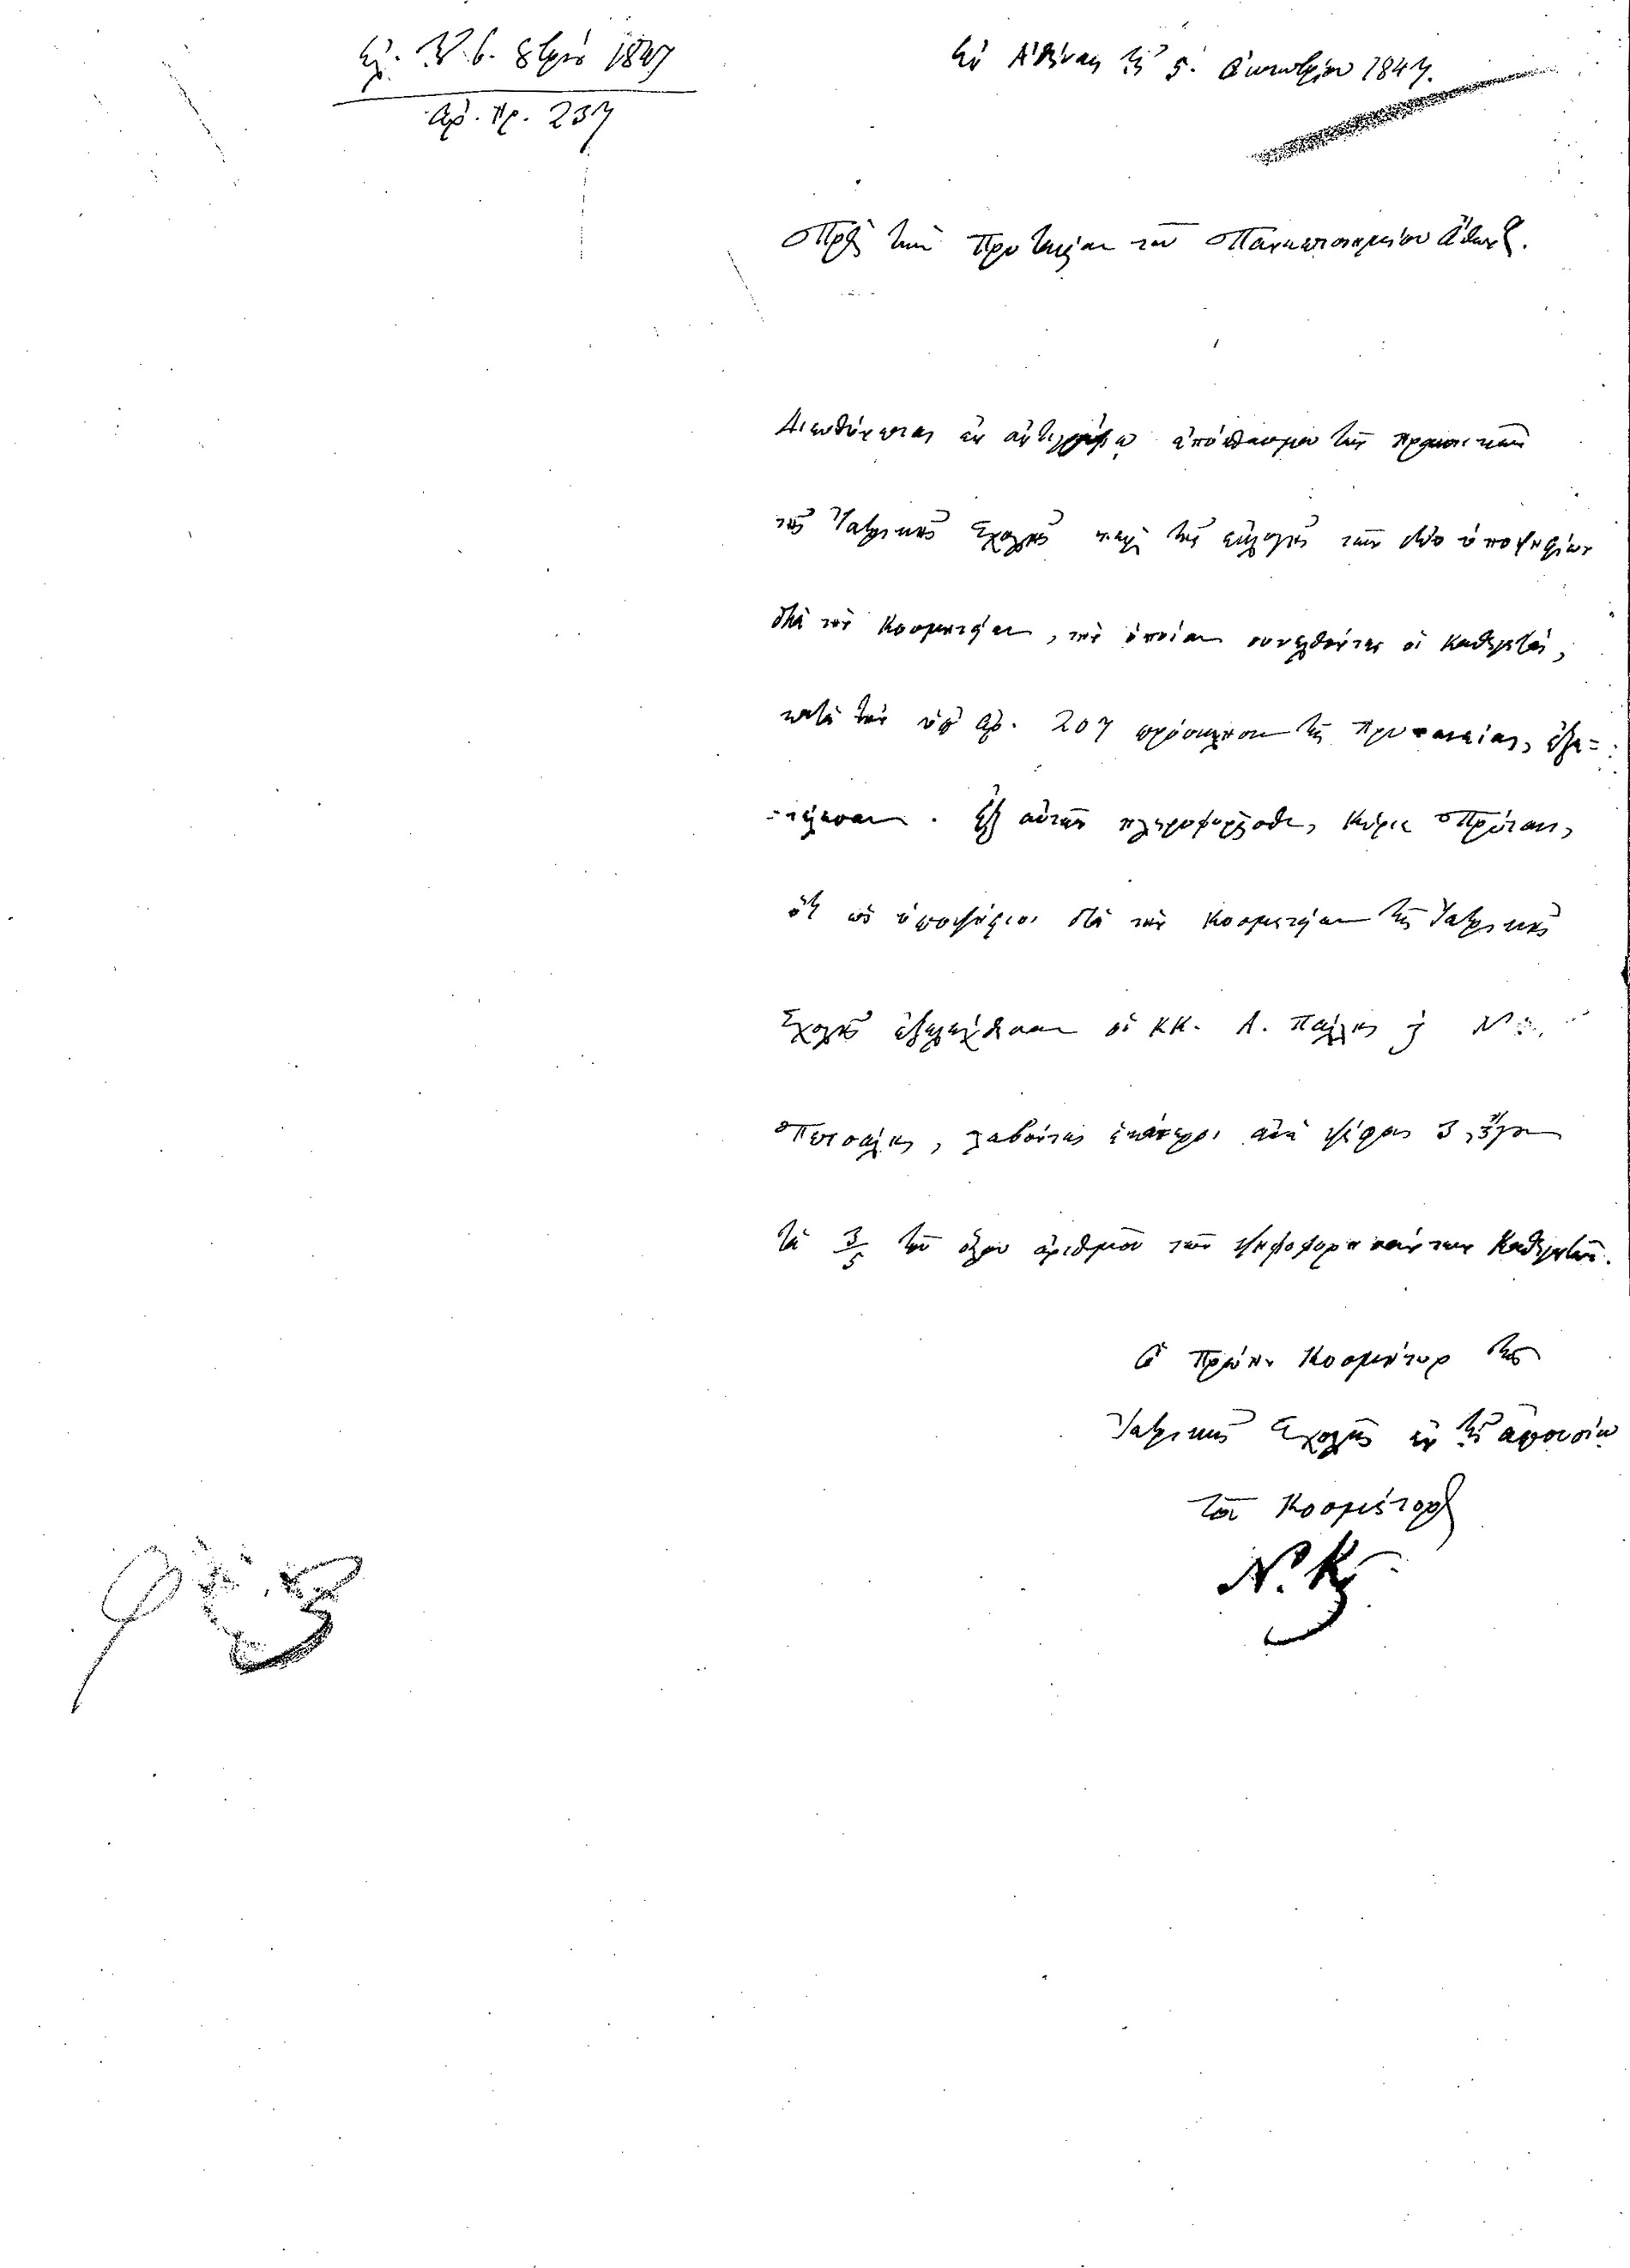 Ἐλ. τῇ 6. 8βρίου 1847
Ἀρ. Πρ. 237
Ἐν Ἀθήναις τῇ 5. Ὀκτωβρίου 1847.
Πρὸς τὴν Πρυτανείαν τοῦ Πανεπιστημείου Ὄθωνος.
Διευθύνεται ἐν ἀντιγράφῳ ἀπόσπασμα τῶν πρακτικῶν
τῆς Ἰατρικῆς Σχολῆς περὶ τῆς ἐκλογῆς τῶν δύο ὑποψηφίων
διὰ τὴν Κοσμητείαν, τὴν ὁποίαν συνελθόντες οἱ Καθηγηταί,
κατὰ τὴν ὑπ' ἀρ. 207 πρόσκλησιν τῆς Πρυτανείας, ἐξε=
=τέλεσαν. Ἐξ αὐτῶν πληροφορεῖσθε, Κύριε Πρύτανι,
ὅτι ὡς ὑποψήφιοι διὰ τὴν Κοσμητείαν τῆς Ἰατρικῆς
Σχολῆς ἐξελέχθησαν οἱ ΚΚ. Α. Πάλλης καὶ Ν.
Πετσάλης, λαβόντες ἑκάτεροι ἀνὰ ψήφους 3, ἤγουν
τὰ 3/5 τοῦ ὅλου ἀριθμοῦ τῶν ψηφοφορησάντων Καθηγητῶν.
Ὁ Πρώην Κοσμήτωρ τῆς
Ἰατρικῆς Σχολῆς ἐν τῇ ἀπουσίᾳ
τοῦ Κοσμήτορος
Ν. Κ